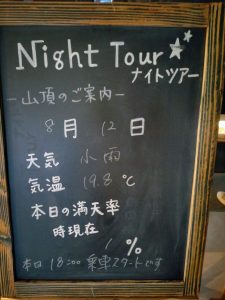 Night Tour
ナイトツアー
-山頂のご案内-
8月12日
天気 小雨
気温 19.8 ℃
本日の満天率
時現在
%
本日 18:00 乗車スタートです